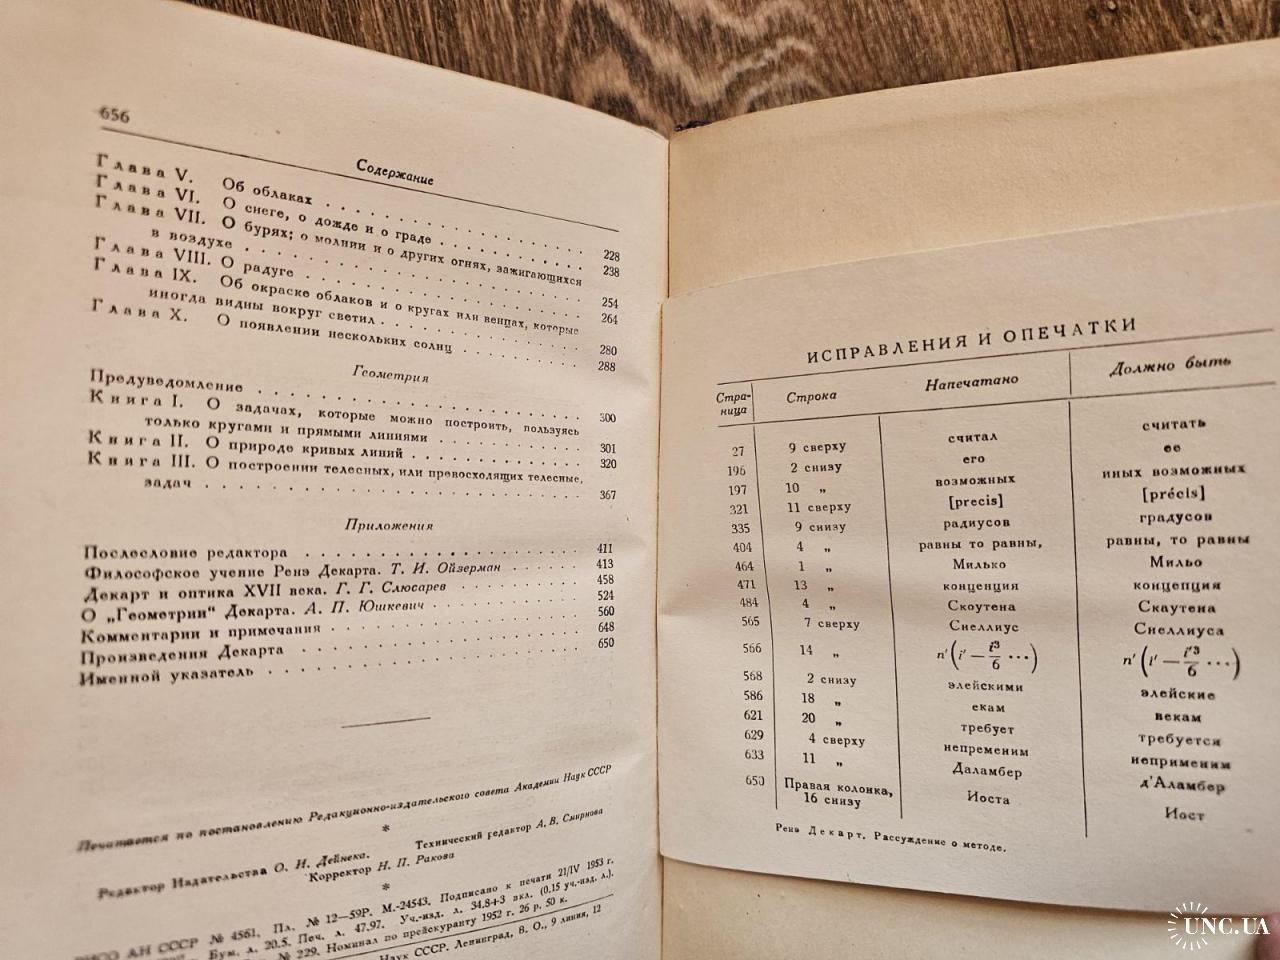 656
Содержание
Глава V. Об облаках . . . 228
Глава VI. О снеге, о дожде и о граде . . . 238
Глава VII. О бурях; о молнии и о других огнях, зажигающихся
в воздухе . . . 254
Глава VIII. О радуге . . . 264
Глава IX. Об окраске облаков и о кругах или венцах, которые
иногда видны вокруг светил . . . 280
Глава X. О появлении нескольких солнц . . . 288
Геометрия
Предуведомление . . . 300
Книга I. О задачах, которые можно построить, пользуясь
только кругами и прямыми линиями . . . 301
Книга II. О природе кривых линий . . . 320
Книга III. О построении телесных, или превосходящих телесные,
задач . . . 367
Приложения
Послесловие редактора . . . 411
Философское учение Ренэ Декарта. Т. И. Ойзерман . . . 413
Декарт и оптика XVII века. Г. Г. Слюсарев . . . 458
О „Геометрии“ Декарта. А. П. Юшкевич . . . 524
Комментарии и примечания . . . 560
Произведения Декарта . . . 648
Именной указатель . . . 650
Печатается по постановлению Редакционно-издательского совета Академии Наук СССР
*
Редактор Издательства О. Н. Дейнека. Технический редактор А. В. Смирнова
Корректор Н. П. Ракова
*
РИСО АН СССР № 4561. Пл. № 12—59Р. М.-24543. Подписано к печати 21/IV 1953 г.
Бум. л. 20.5. Печ. л. 47.97. Уч.-изд. л. 34.8+3 вкл. (0.15 уч.-изд. л.).
№ 229. Номинал по прейскуранту 1952 г. 26 р. 50 к.
Наук СССР. Ленинград, В. О., 9 линия, 12
ИСПРАВЛЕНИЯ И ОПЕЧАТКИ
Стра-
ница Строка Напечатано Должно быть
27 9 сверху считал считать
196 2 снизу его ее
197 10 „ возможных иных возможных
321 11 сверху [precis] [précis]
335 9 снизу радиусов градусов
404 4 „ равны то равны, равны, то равны
464 1 „ Милько Мильо
471 13 „ конценция концепция
484 4 „ Скоутена Скаутена
565 7 сверху Снеллиус Снеллиуса
566 14 „ n′(i′ – i³/6 ...) n′(i′ – i′³/6 ...)
568 2 снизу элейскими элейские
586 18 „ екам векам
621 20 „ требует требуется
629 4 сверху непременим неприменим
633 11 „ Даламбер д'Аламбер
650 Правая колонка,
16 снизу Иоста Иост
Ренэ Декарт. Рассуждение о методе.
UNC.UA